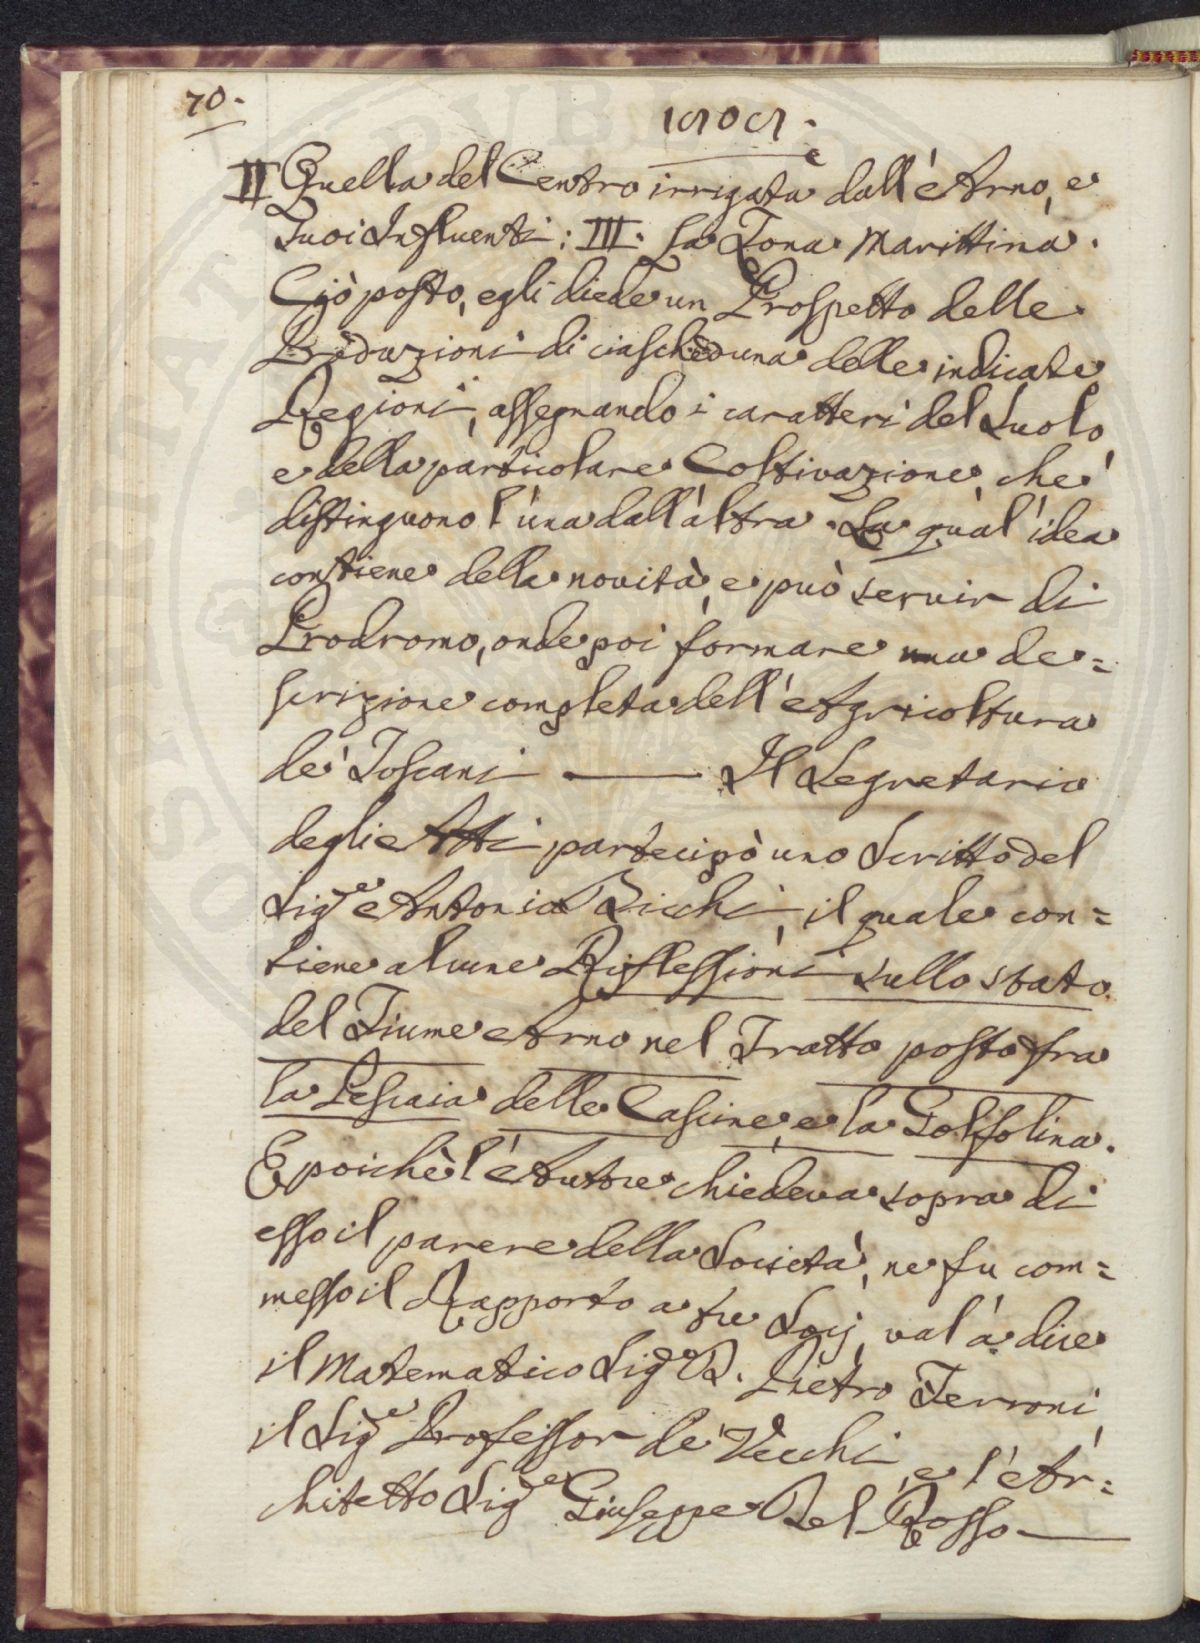 70.
1909.
II Quella del Centro irrigata dall'Arno, e
suoi Influenti: III. La Zona Marittima.
Ciò posto, egli diede un Prospetto delle
Produzioni di ciascheduna delle indicate
Regioni, assegnando i caratteri del Suolo
e della particolare Coltivazione, che
distinguono l'una dall'altra. La qual'idea
contiene della novità, e può servir di
Prodromo, onde poi formare una de=
scrizione completa dell'Agricoltura
de' Toscani — Il Segretario
degli Atti partecipò uno Scritto del
Sig.e Antonio Zicchi, il quale con=
tiene alcune Riflessioni sullo stato
del Fiume Arno nel Tratto posto fra
la Pescaia delle Cascine, e la Golfolina.
E poichè l'Autore chiedeva sopra di
esso il parere della Società, ne fu com=
messo il Rapporto a tre Socj, val'a dire
il Matematico Sig.e D. Pietro Ferroni,
il Sig.e Professor de' Vecchi, e l'Ar=
chitetto Sig.e Giuseppe Del Rosso —